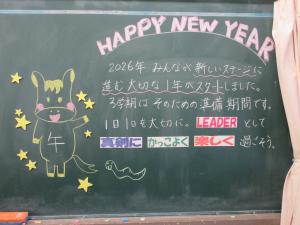 HAPPY NEW YEAR
2026年 みんなが新しいステージに
進む大切な1年がスタートしました。
3学期はそのための準備期間です。
1日1日を大切に。LEADERとして
真剣に かっこよく 楽しく 過ごそう。
午